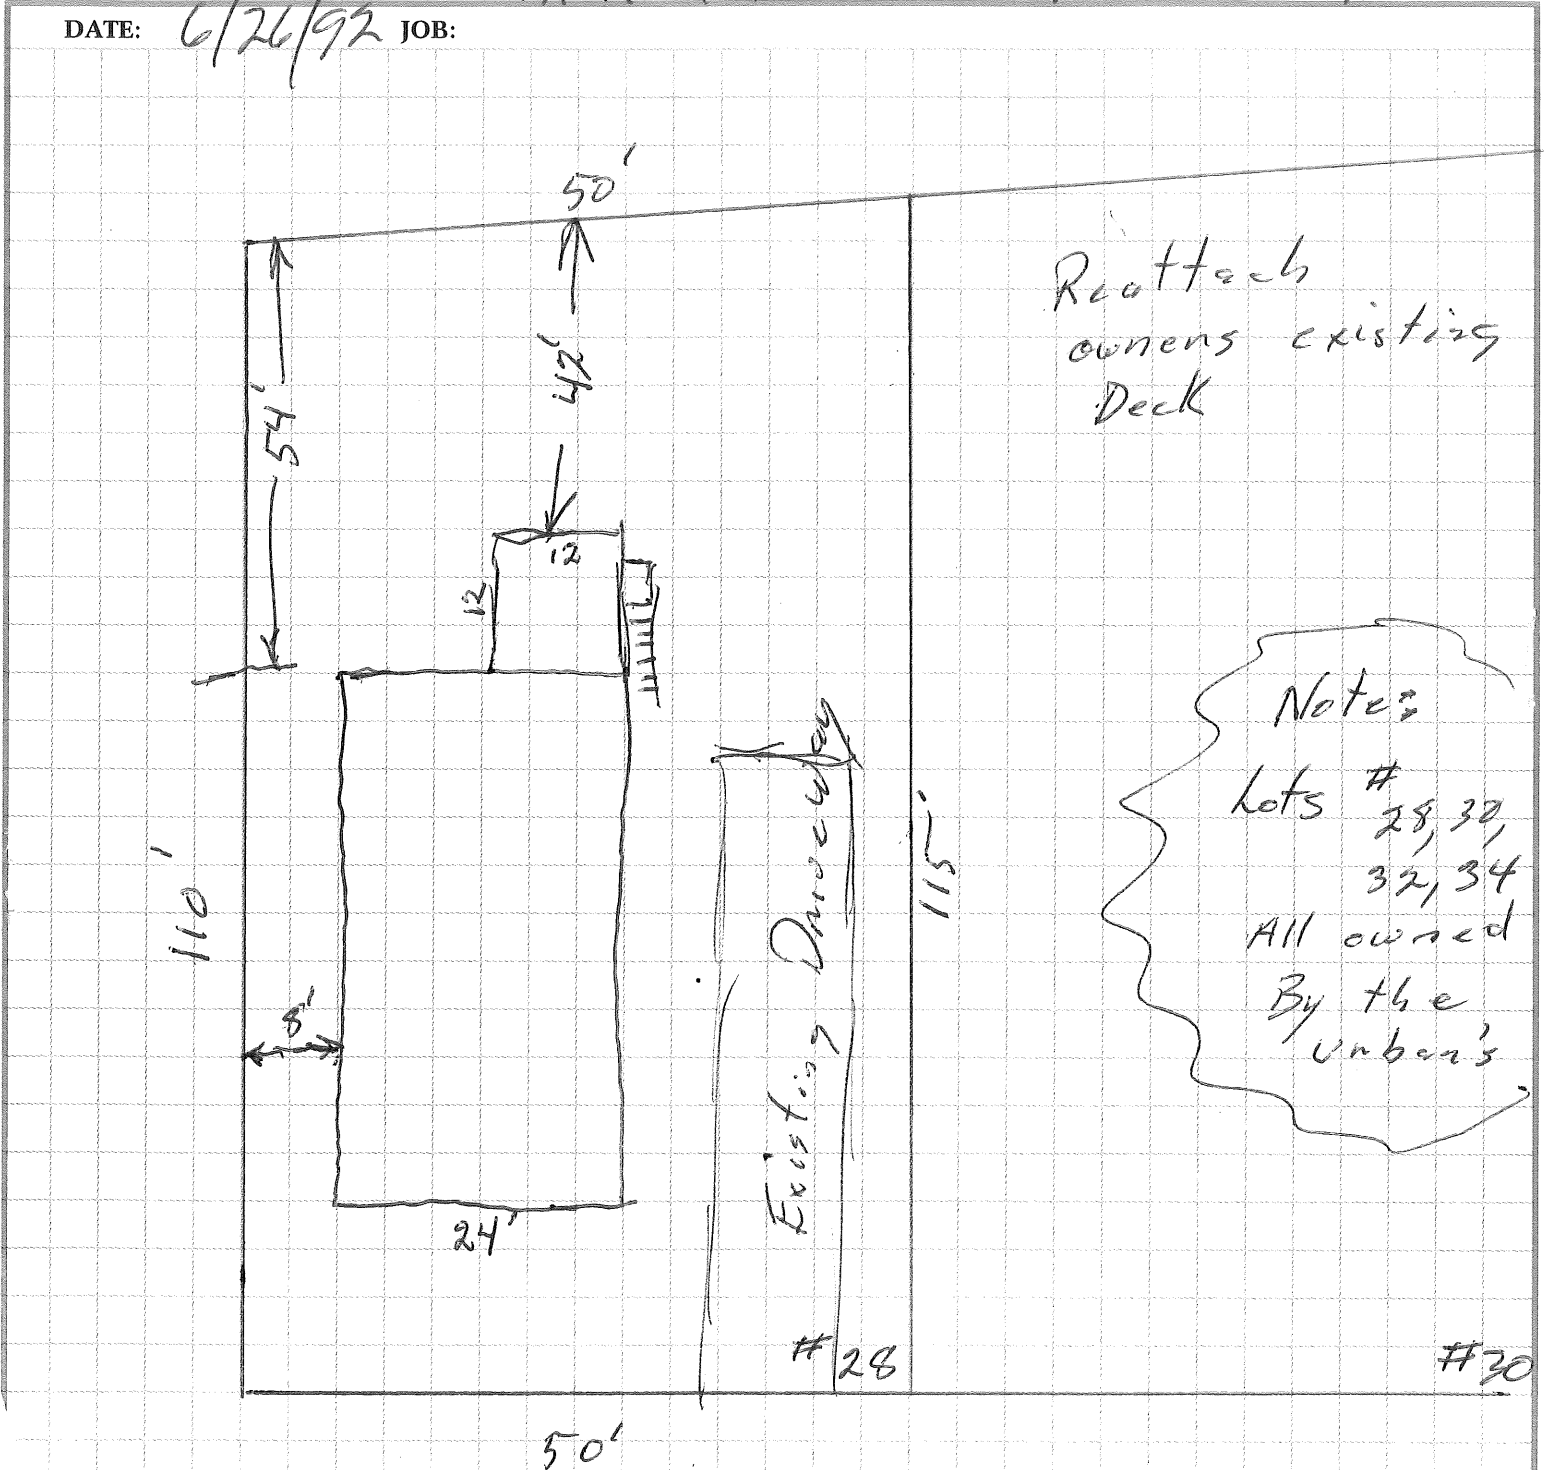 DATE: 6/26/92 JOB:
50'
Reattach
owners existing
Deck
42'
54'
12
12
Note:
Lots #
28, 30,
32, 34
All owned
By the
Urban's
Existing Driveway
115'
110'
8'
24'
#28
#30
50'